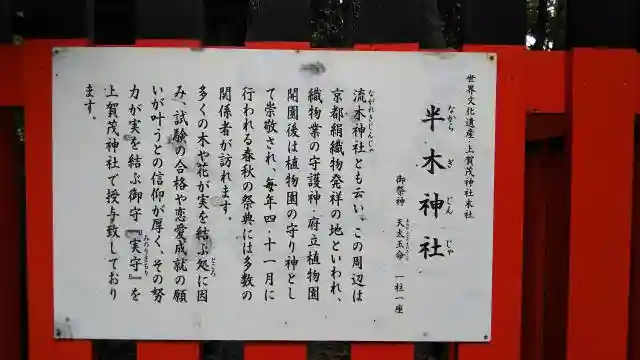 世界文化遺産・上賀茂神社末社
半木神社
なからぎじんじゃ
御祭神 天太玉命 一柱一座
あめのふとたまのみこと
流木神社とも云い、この周辺は
ながれきじんじゃ
京都絹織物発祥の地といわれ、
織物業の守護神・府立植物園
開園後は植物園の守り神とし
て崇敬され、毎年四・十一月に
行われる春秋の祭典には多数の
関係者が訪れます。
多くの木や花が実を結ぶ処に因
ところ
み、試験の合格や恋愛成就の願
いが叶うとの信仰が厚く、その努
力が実を結ぶ御守『実守』を
みのりまもり
上賀茂神社で授与致しており
ます。